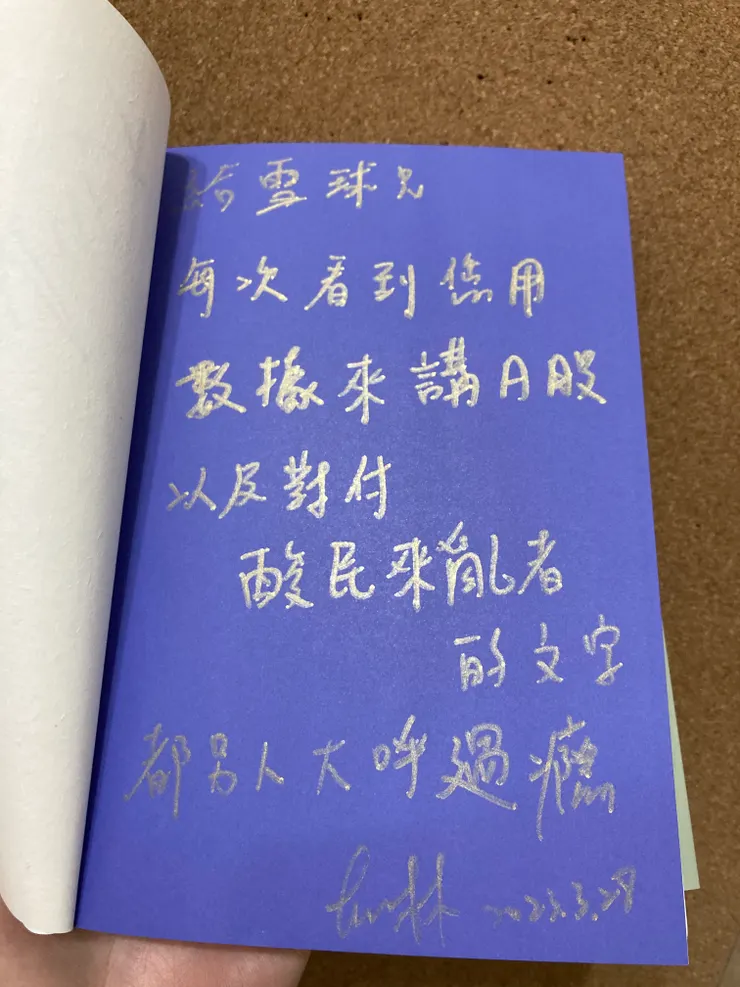 給雪球兄
每次看到您用
數據來講A股
以及對付
酸民來亂者
的文字
都另人大呼過癮
林 2023.3.28